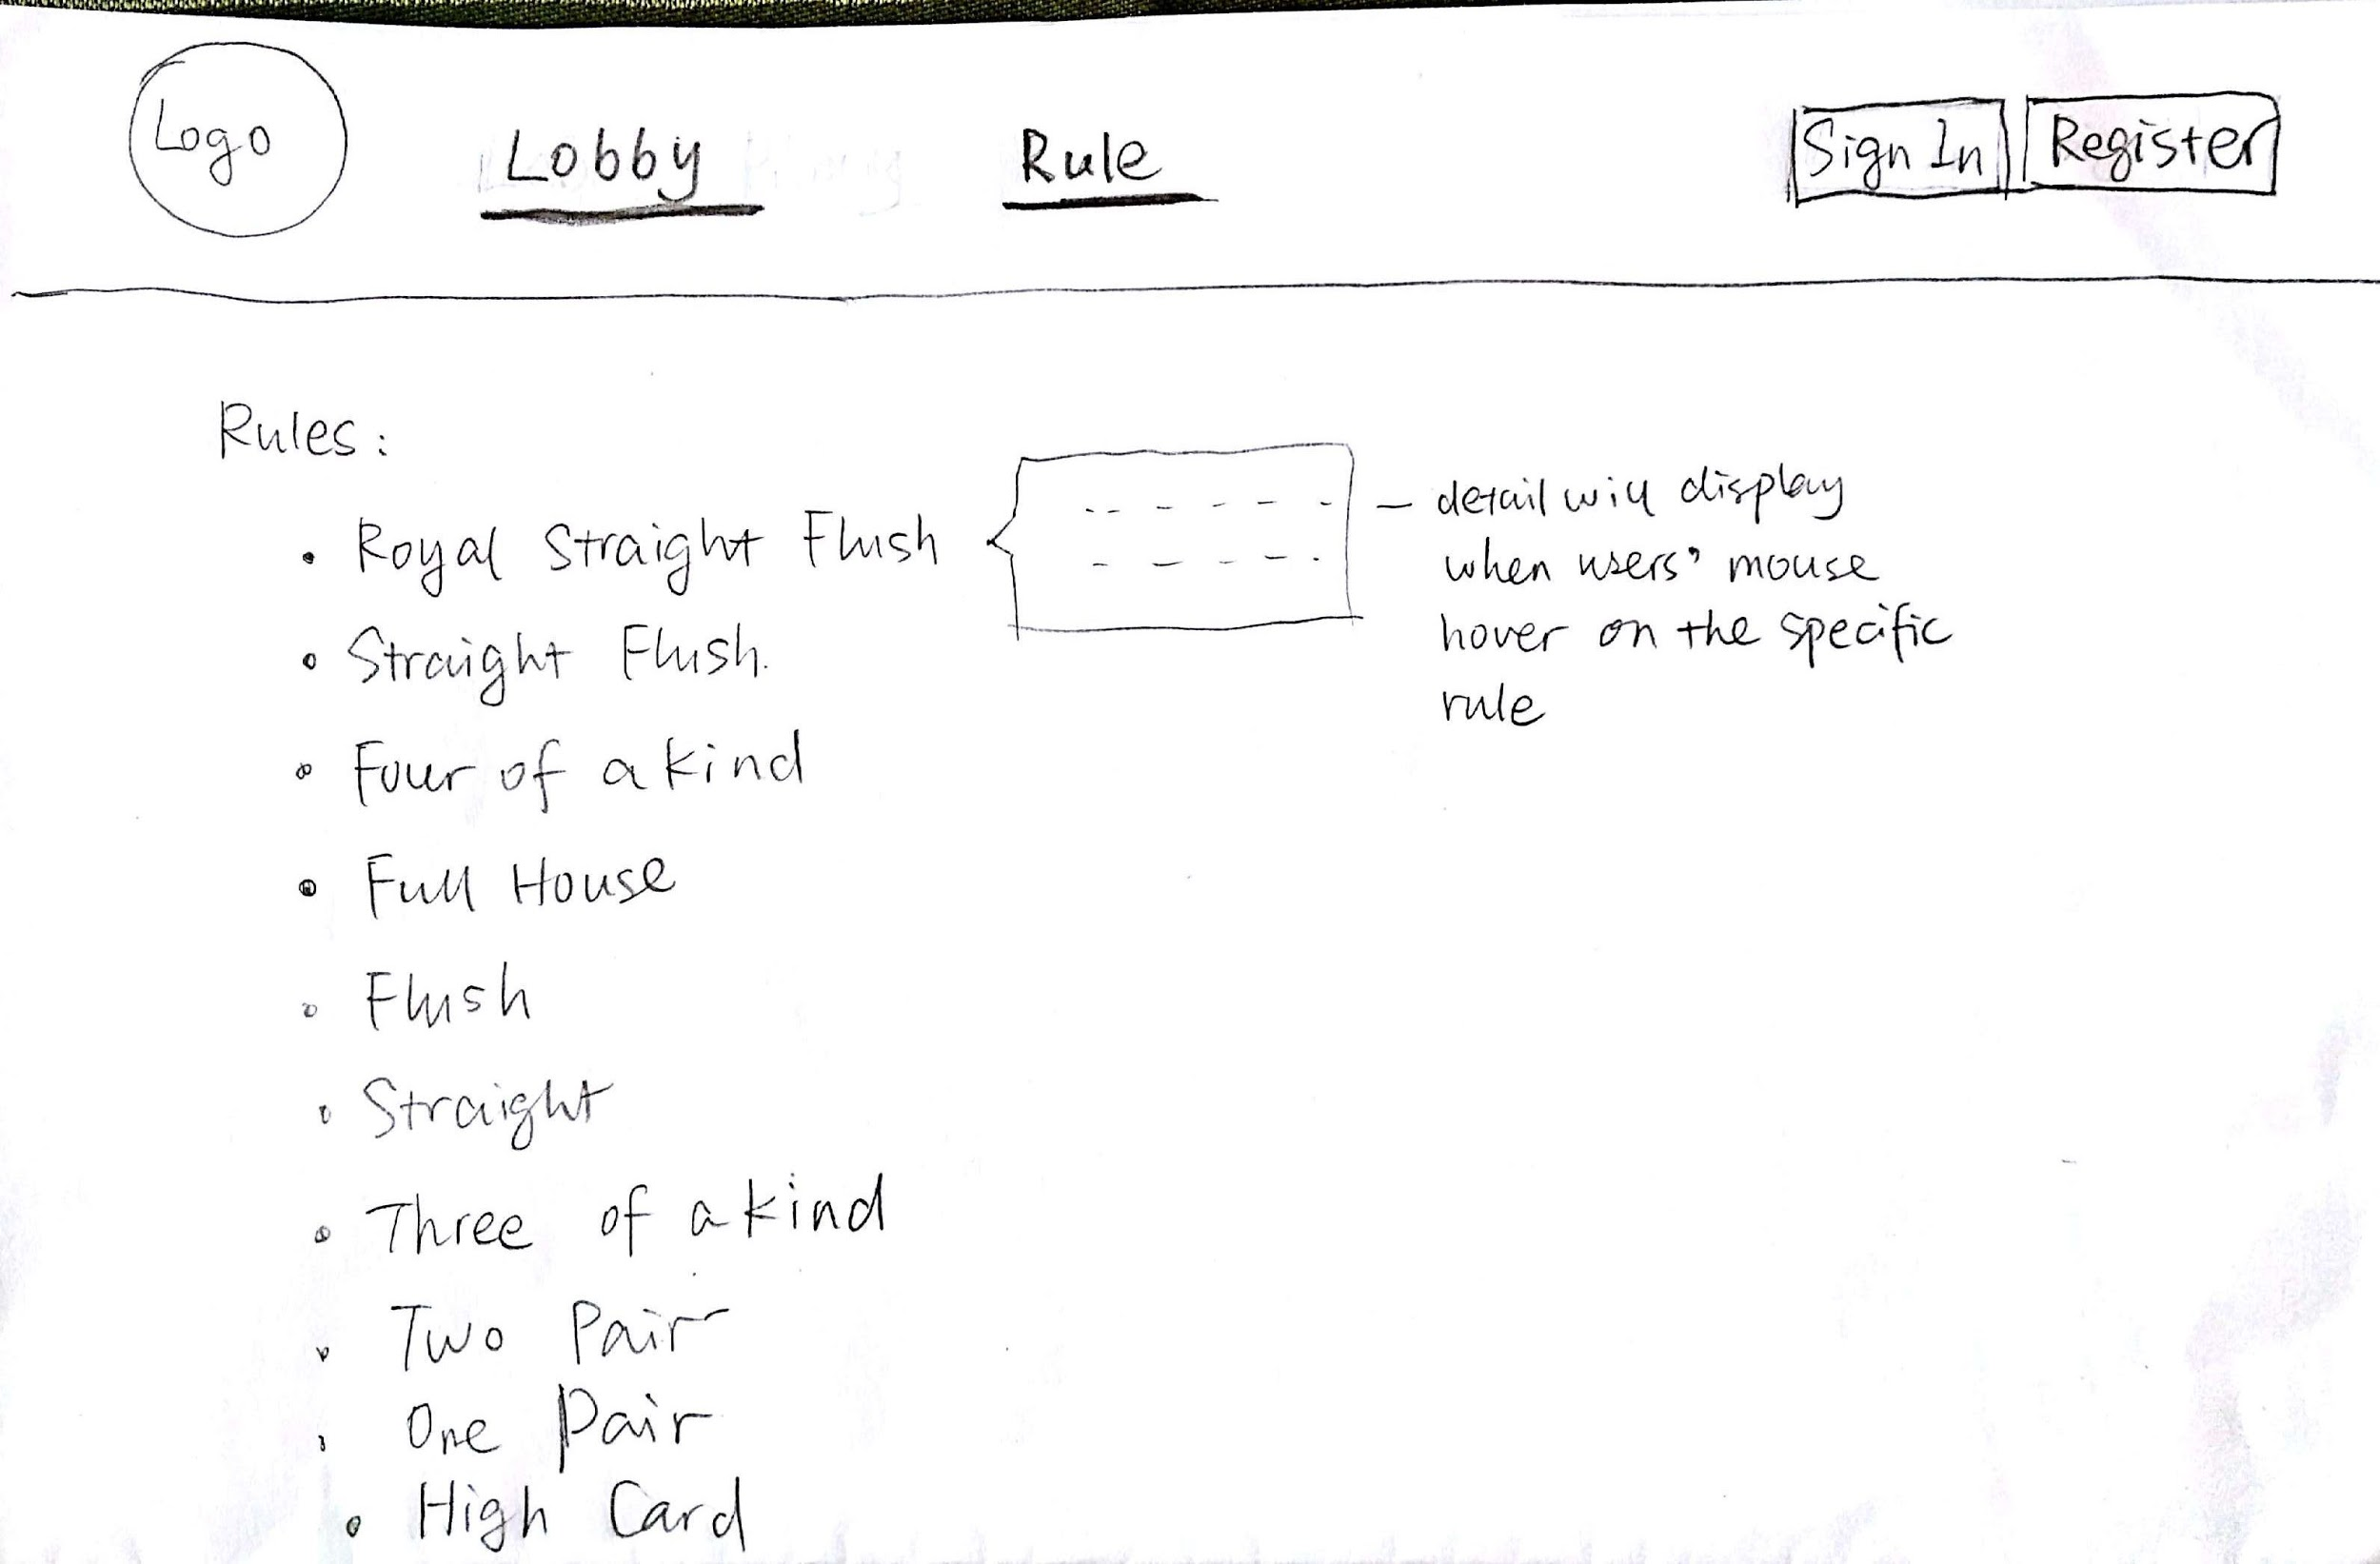 Logo
Lobby
Rule
Sign In
Register
Rules:
• Royal Straight Flush
• Straight Flush.
• Four of a kind
• Full House
• Flush
• Straight
• Three of a kind
• Two Pair
• One Pair
• High Card
— detail will display
when users' mouse
hover on the specific
rule